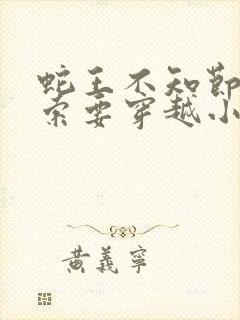 蛇王不知节
索要穿越小
黄义宁